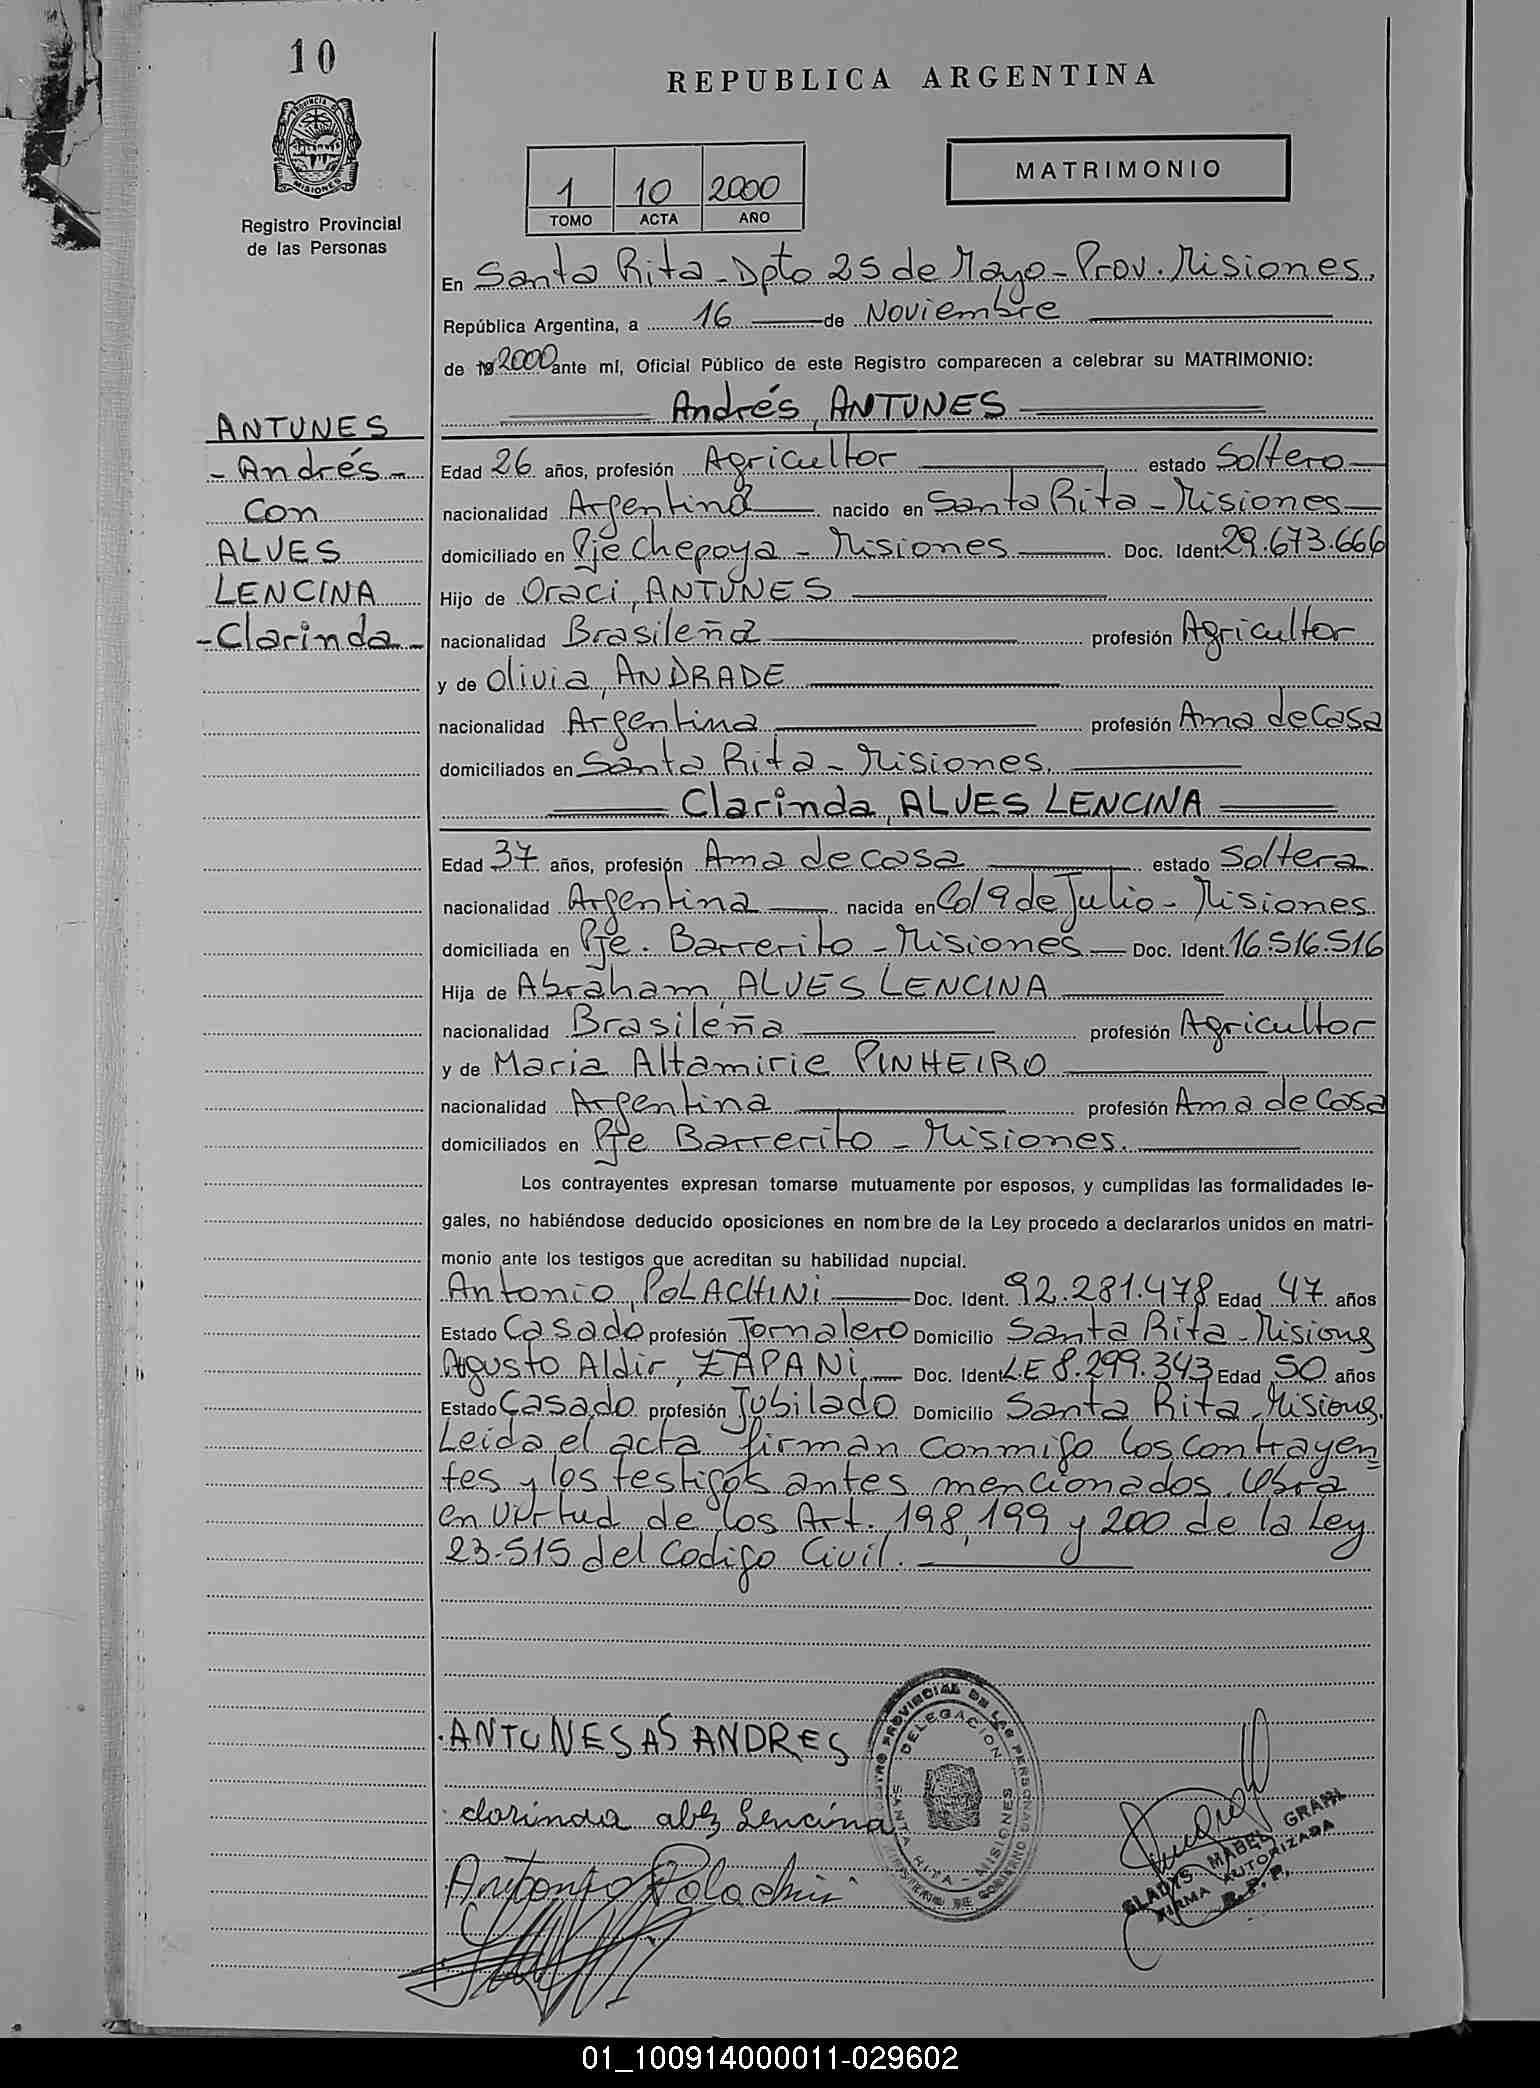 10
REPUBLICA ARGENTINA
PROVINCIA DE MISIONES
Registro Provincial
de las Personas
1 10 2000
TOMO ACTA AÑO
MATRIMONIO
En Santa Rita - Dpto 25 de Mayo - Prov. Misiones.
República Argentina, a 16 de Noviembre
de 19 2000 ante mí, Oficial Público de este Registro comparecen a celebrar su MATRIMONIO:
Andrés, ANTUNES
ANTUNES
- Andrés -
Con
ALVES
LENCINA
- Clarinda -
Edad 26 años, profesión Agricultor estado Soltero
nacionalidad Argentina nacido en Santa Rita - Misiones
domiciliado en Pje Chepoya - Misiones Doc. Ident. 29.673.666
Hijo de Oraci, ANTUNES
nacionalidad Brasileña profesión Agricultor
y de Olivia, ANDRADE
nacionalidad Argentina profesión Ama de Casa
domiciliados en Santa Rita - Misiones.
Clarinda, ALVES LENCINA
Edad 37 años, profesión Ama de casa estado Soltera
nacionalidad Argentina nacida en Col 9 de Julio - Misiones
domiciliada en Pje. Barrerito - Misiones Doc. Ident. 16.516.516
Hija de Abraham, ALVES LENCINA
nacionalidad Brasileña profesión Agricultor
y de Maria Altamirie PINHEIRO
nacionalidad Argentina profesión Ama de Casa
domiciliados en Pje Barrerito - Misiones.
Los contrayentes expresan tomarse mutuamente por esposos, y cumplidas las formalidades le-
gales, no habiéndose deducido oposiciones en nombre de la Ley procedo a declararlos unidos en matri-
monio ante los testigos que acreditan su habilidad nupcial.
Antonio, POLACHINI Doc. Ident. 92.281.478 Edad 47 años
Estado Casado profesión Jornalero Domicilio Santa Rita - Misiones
Agusto Aldir, ZAPANI Doc. Ident. L.E 8.299.343 Edad 50 años
Estado Casado profesión Jubilado Domicilio Santa Rita - Misiones.
Leida el acta firman conmigo los contrayen=
tes y los testigos antes mencionados. Obra
en virtud de los Art. 198, 199 y 200 de la Ley
23.515 del Codigo Civil.
ANTUNES AS ANDRES
clarinda alves Lencina
Antonio Polachini
REGISTRO PROVINCIAL DE LAS PERSONAS
DELEGACION
SANTA RITA - MISIONES
MINISTERIO DE GOBIERNO
GLADYS MABEL GRAHL
FIRMA AUTORIZADA
R. P. P.
01_100914000011-029602